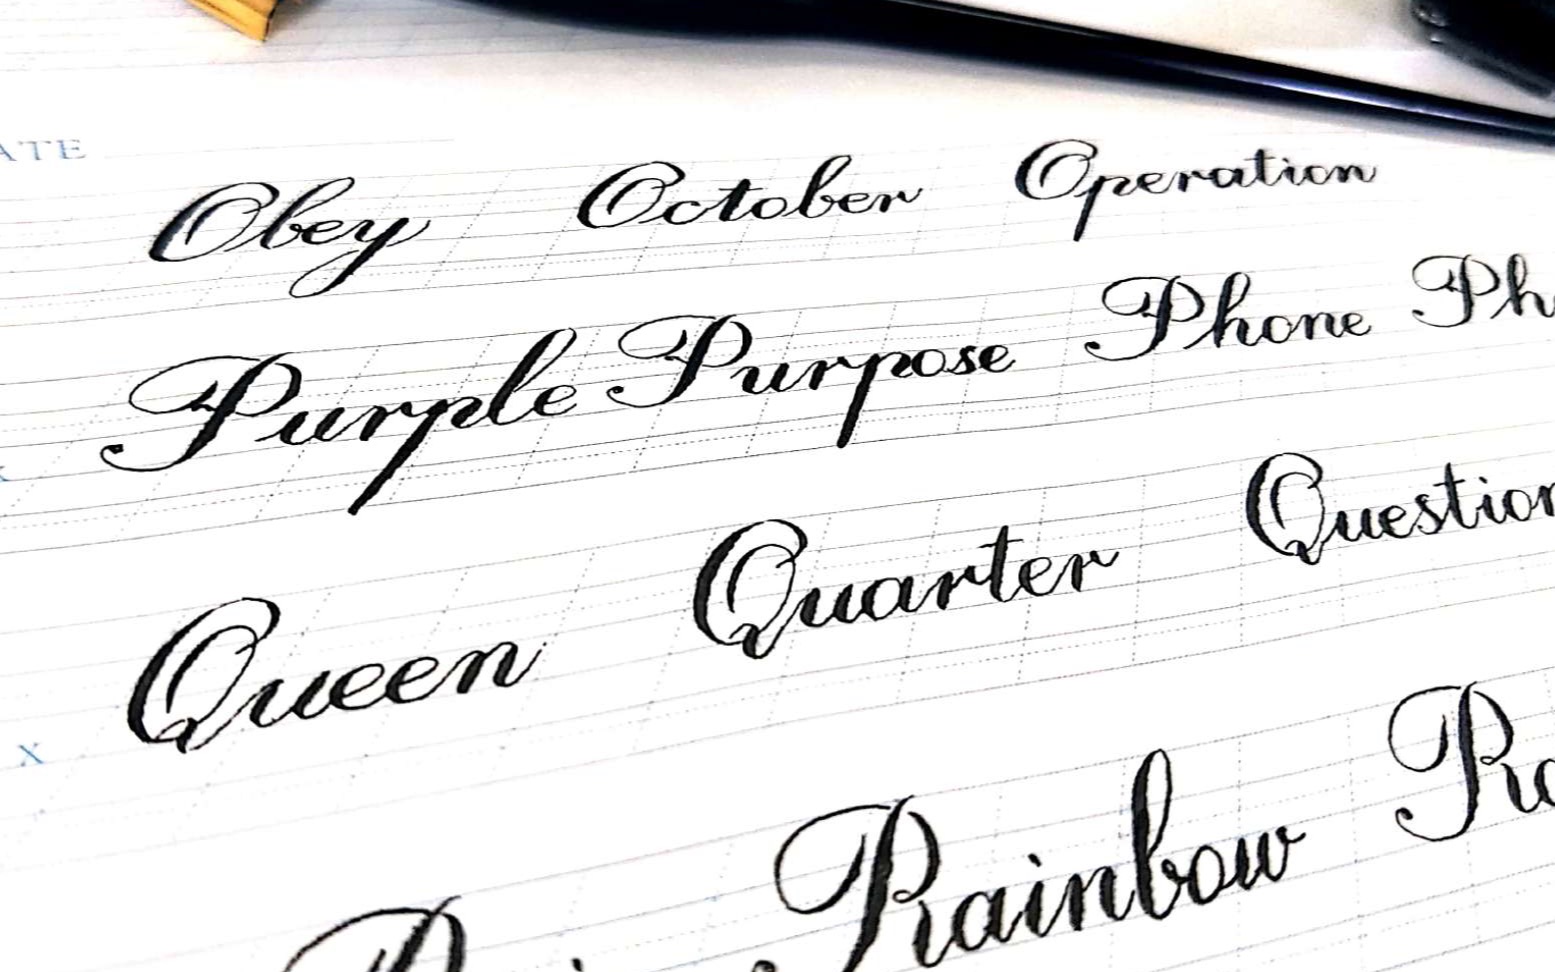 ATE
Obey October Operation
Purple Purpose Phone Ph
Queen Quarter Question
X
Rainbow